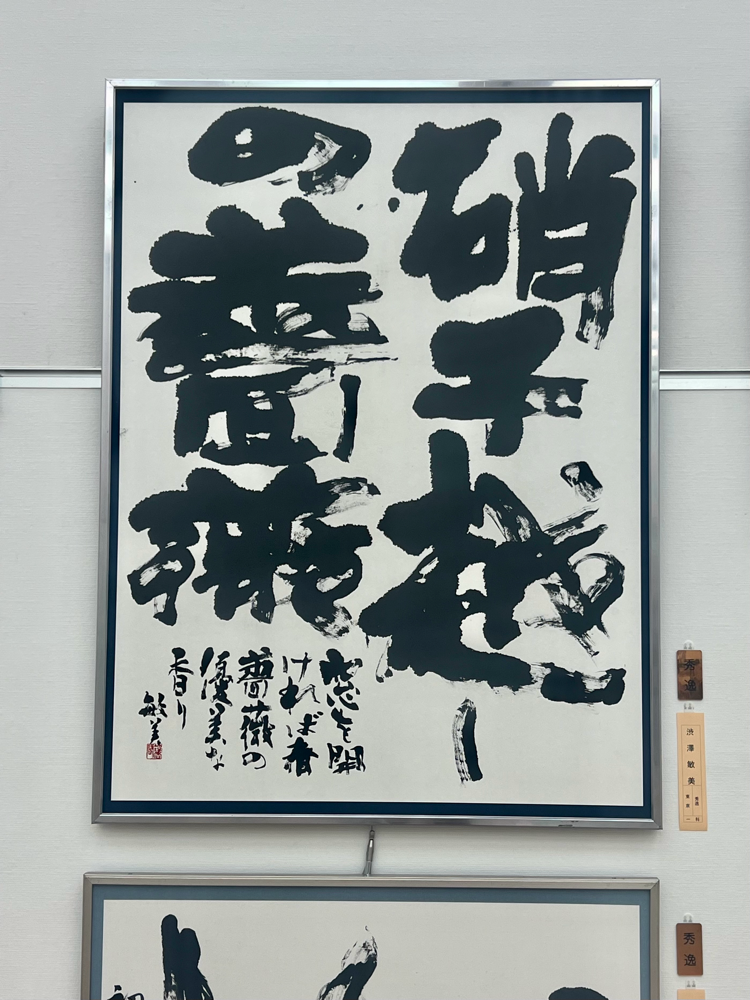 硝子越し
の薔薇
窓を開
ければ
薔薇の
優美な
香り
敏美
秀逸
渋澤敏美
秀逸